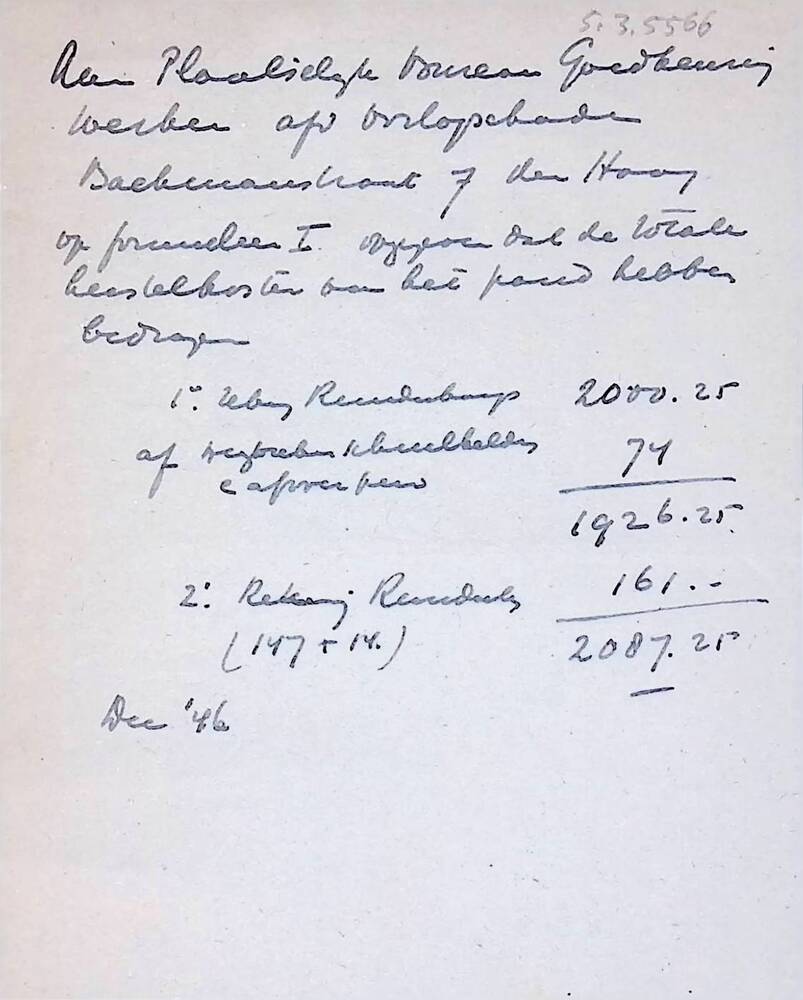 5.3.5566
Aan Plaatselijk bureau Goedkeuring
werken afd oorlogschaden
Backmanstraat 7 den Haag
op formulier I. opgegeven dat de totale
herstelkosten van het pand hebben
bedragen
1e. 2000.25
af 74
1926.25
2e. Rekening 161.-
(147 + 14.) 2087.25
Dec '46